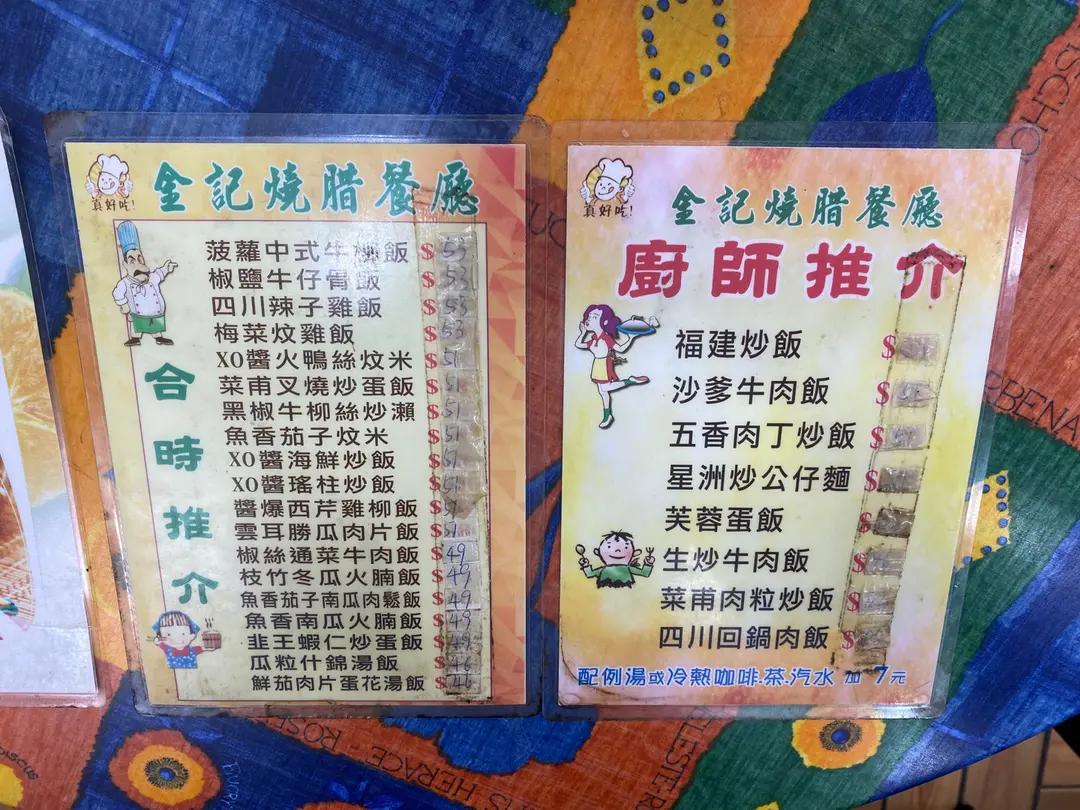 真好吃!
金記燒腊餐廳
合時推介
菠蘿中式牛柳飯 $53
椒鹽牛仔骨飯 $53
四川辣子雞飯 $53
梅菜炆雞飯 $53
XO醬火鴨絲炆米 $51
菜甫叉燒炒蛋飯 $51
黑椒牛柳絲炒瀨 $51
魚香茄子炆米 $51
XO醬海鮮炒飯 $51
XO醬瑤柱炒飯 $51
醬爆西芹雞柳飯 $51
雲耳勝瓜肉片飯 $51
椒絲通菜牛肉飯 $49
枝竹冬瓜火腩飯 $49
魚香茄子南瓜肉鬆飯 $49
魚香南瓜火腩飯 $49
韭王蝦仁炒蛋飯 $49
瓜粒什錦湯飯 $46
鮮茄肉片蛋花湯飯 $46
真好吃!
金記燒腊餐廳
廚師推介
福建炒飯 $
沙爹牛肉飯 $
五香肉丁炒飯 $
星洲炒公仔麵 $
芙蓉蛋飯 $
生炒牛肉飯 $
菜甫肉粒炒飯 $
四川回鍋肉飯 $
配例湯或冷熱咖啡.茶.汽水 加 7元